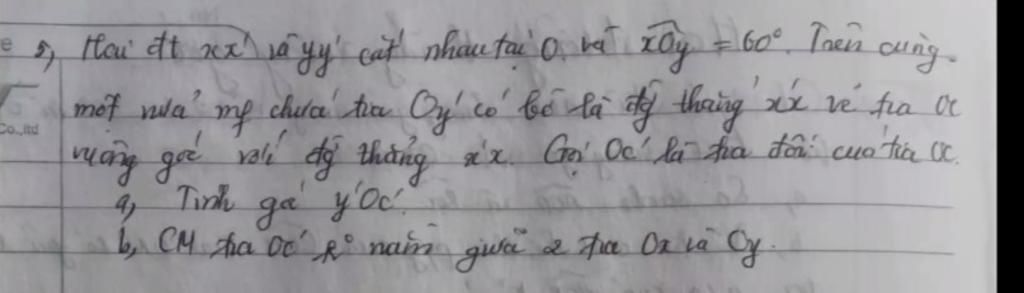 5, Hai đt xx' và yy' cắt nhau tại O. và xOy = 60°. Trên cùng
một nửa mp chứa tia Oy' có bờ là đg thẳng x'x vẽ tia Oc
Co.,ltd
vuông góc với đg thẳng x'x. Gọi Oc' là tia đối của tia Oc.
a, Tính góc y'Oc'.
b, CM tia Oc' k° nằm giữa 2 tia Ox và Oy.